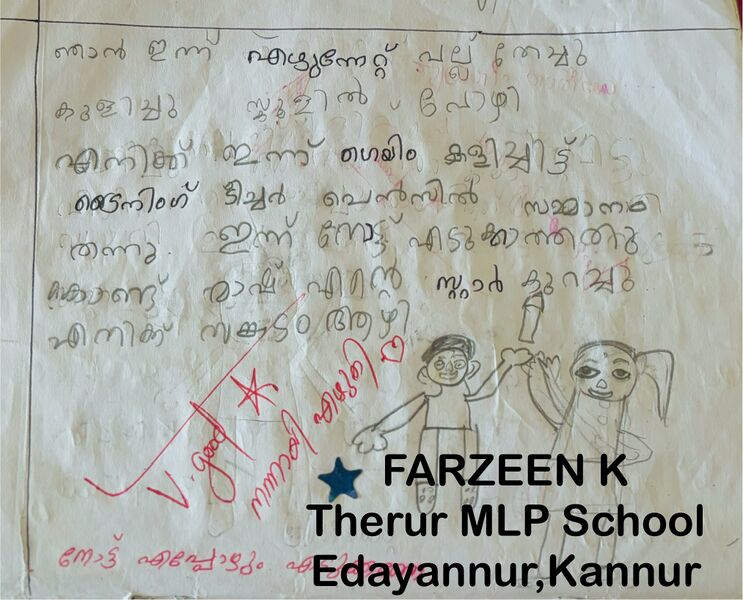 ഞാൻ ഇന്ന് എഴുന്നേറ്റ് പല്ല് തേച്ചു
കുളിച്ചു സ്കൂളിൽ പോഴി
എനിക്ക് ഇന്ന് ഗെയിം കളിച്ചിട്ട്
ട്രൈനിംഗ് ടീച്ചർ പെൻസിൽ സമ്മാനമായി
തന്നു. ഇന്ന് നോട്ട് എടുക്കാത്തതു
കൊണ്ട് രാഷ് എൻ്റെ സ്റ്റാർ കുറച്ചു
എനിക്ക് സങ്കടം ആഴി
V. good
നന്നായി എഴുതി
നോട്ട് എപ്പോഴും
FARZEEN K
Therur MLP School
Edayannur,Kannur